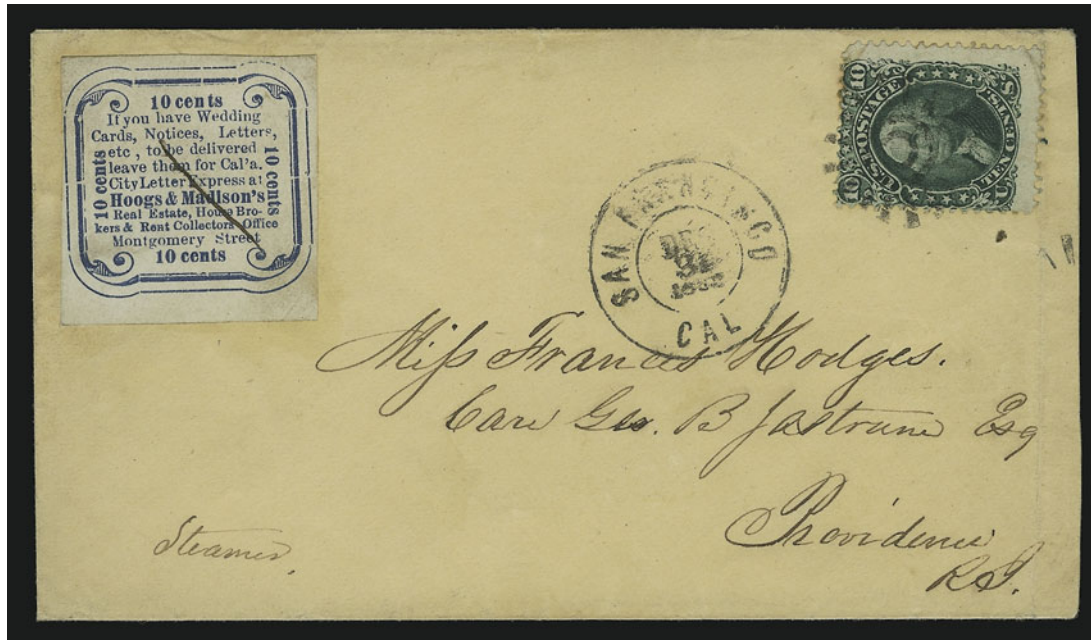 10 cents
If you have Wedding
Cards, Notices, Letters,
etc , to be delivered
leave them for Cal'a.
City Letter Express at
Hoogs & Madison's
Real Estate, House Bro-
kers & Rent Collectors Office
Montgomery Street
10 cents
10 cents
10 cents
10
U.S. POSTAGE
10
TEN CENTS.
U
S
SAN FRANCISCO
DEC
31
CAL
Miss Frances Hodges.
Care Geo. B Jastram Esq
Providence
R I.
Steamer.